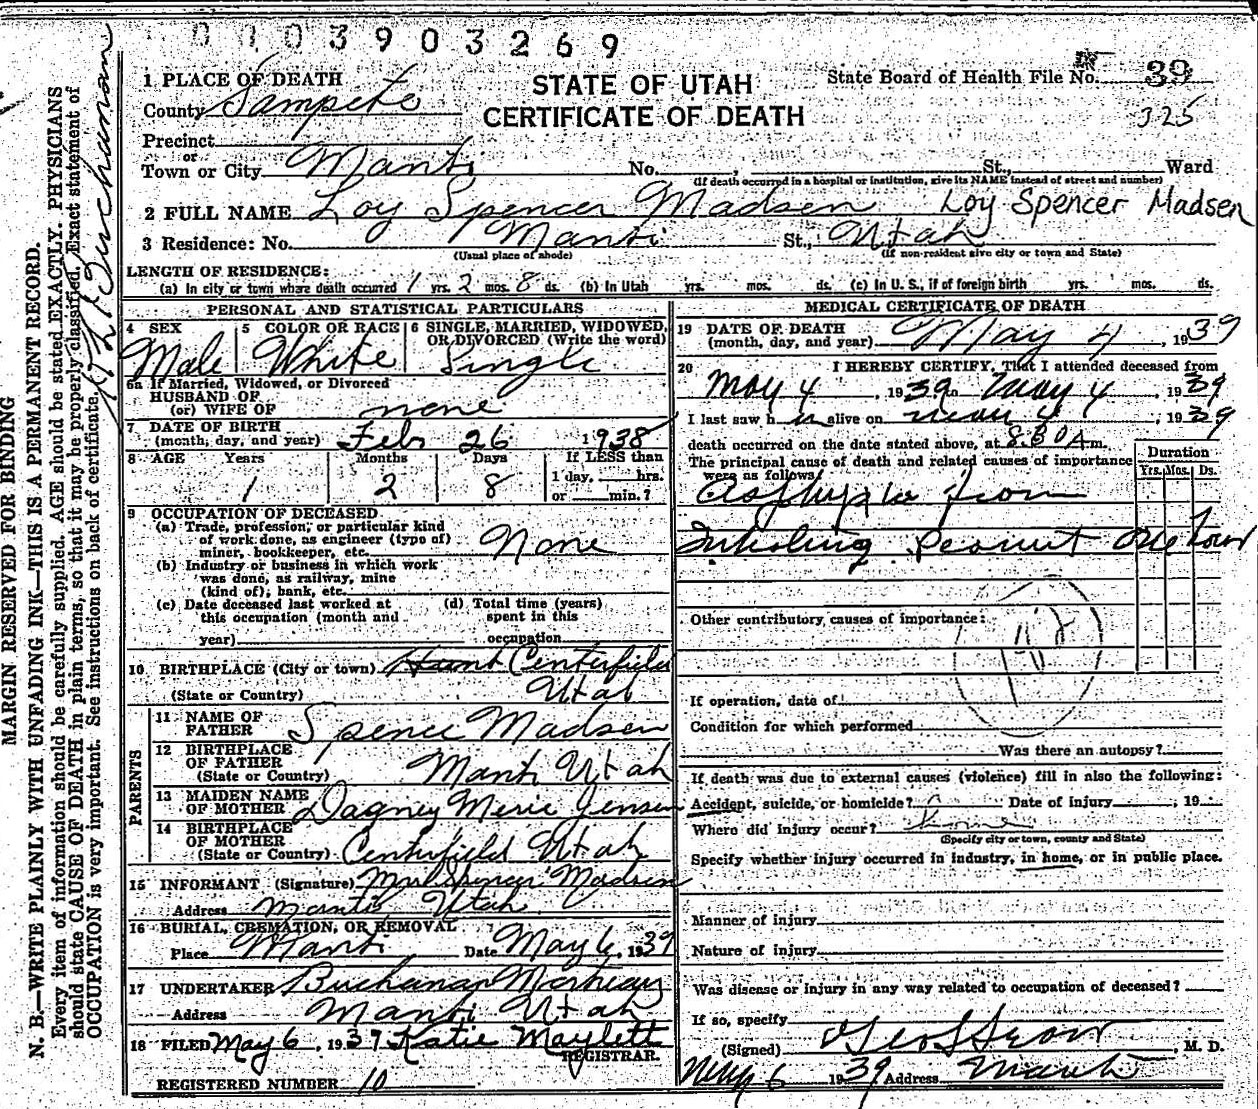 0103903269
1 PLACE OF DEATH
County Sampete
STATE OF UTAH
CERTIFICATE OF DEATH
State Board of Health File No. 39
325
Precinct
or
Town or City Manti No. , St., Ward
(If death occurred in a hospital or institution, give its NAME instead of street and number)
2 FULL NAME Loy Spencer Madsen Loy Spencer Madsen
3 Residence: No. Manti St., Utah
(Usual place of abode) (If non-resident give city or town and State)
LENGTH OF RESIDENCE:
(a) In city or town where death occurred 1 yrs. 2 mos. 8 ds. (b) In Utah yrs. mos. ds. (c) In U. S., if of foreign birth yrs. mos. ds.
PERSONAL AND STATISTICAL PARTICULARS
4 SEX Male
5 COLOR OR RACE White
6 SINGLE, MARRIED, WIDOWED, OR DIVORCED (Write the word) Single
6a If Married, Widowed, or Divorced
HUSBAND OF
(or) WIFE OF none
7 DATE OF BIRTH
(month, day, and year) Feb 26 1938
8 AGE Years Months Days If LESS than
1 2 8 1 day, hrs.
or min.?
9 OCCUPATION OF DECEASED
(a) Trade, profession, or particular kind
of work done, as engineer (type of)
miner, bookkeeper, etc. None
(b) Industry or business in which work
was done, as railway, mine
(kind of), bank, etc.
(c) Date deceased last worked at (d) Total time (years)
this occupation (month and spent in this
year) occupation
10 BIRTHPLACE (City or town) Centerfield
(State or Country) Utah
PARENTS
11 NAME OF
FATHER Spence Madsen
12 BIRTHPLACE
OF FATHER
(State or Country) Manti Utah
13 MAIDEN NAME
OF MOTHER Dagney Merie Jensen
14 BIRTHPLACE
OF MOTHER
(State or Country) Centerfield Utah
15 INFORMANT (Signature) Mrs Spencer Madsen
Address Manti, Utah
16 BURIAL, CREMATION, OR REMOVAL
Place Manti Date May 6, 1939
17 UNDERTAKER Buchanan Mortuary
Address Manti Utah
18 FILED May 6, 1939 Katie Maylett
REGISTRAR.
REGISTERED NUMBER 10
MEDICAL CERTIFICATE OF DEATH
19 DATE OF DEATH
(month, day, and year) May 4, 1939
20 I HEREBY CERTIFY, That I attended deceased from
May 4, 1939 to May 4, 1939
I last saw him alive on May 4, 1939
death occurred on the date stated above, at 8.30 A m.
The principal cause of death and related causes of importance
were as follows:
Duration
Yrs. Mos. Ds.
Asphyxia from
Inhaling Peanut One hour
Other contributory causes of importance:
If operation, date of
Condition for which performed
Was there an autopsy?
If death was due to external causes (violence) fill in also the following:
Accident, suicide, or homicide? Date of injury , 19
Where did injury occur? home
(Specify city or town, county and State)
Specify whether injury occurred in industry, in home, or in public place.
Manner of injury
Nature of injury
Was disease or injury in any way related to occupation of deceased?
If so, specify
(Signed) , M. D.
May 6 1939 Address Manti
MARGIN RESERVED FOR BINDING
N. B.—WRITE PLAINLY WITH UNFADING INK—THIS IS A PERMANENT RECORD.
Every item of information should be carefully supplied. AGE should be stated EXACTLY. PHYSICIANS
should state CAUSE OF DEATH in plain terms, so that it may be properly classified. Exact statement of
OCCUPATION is very important. See instructions on back of certificate.
Buchanan